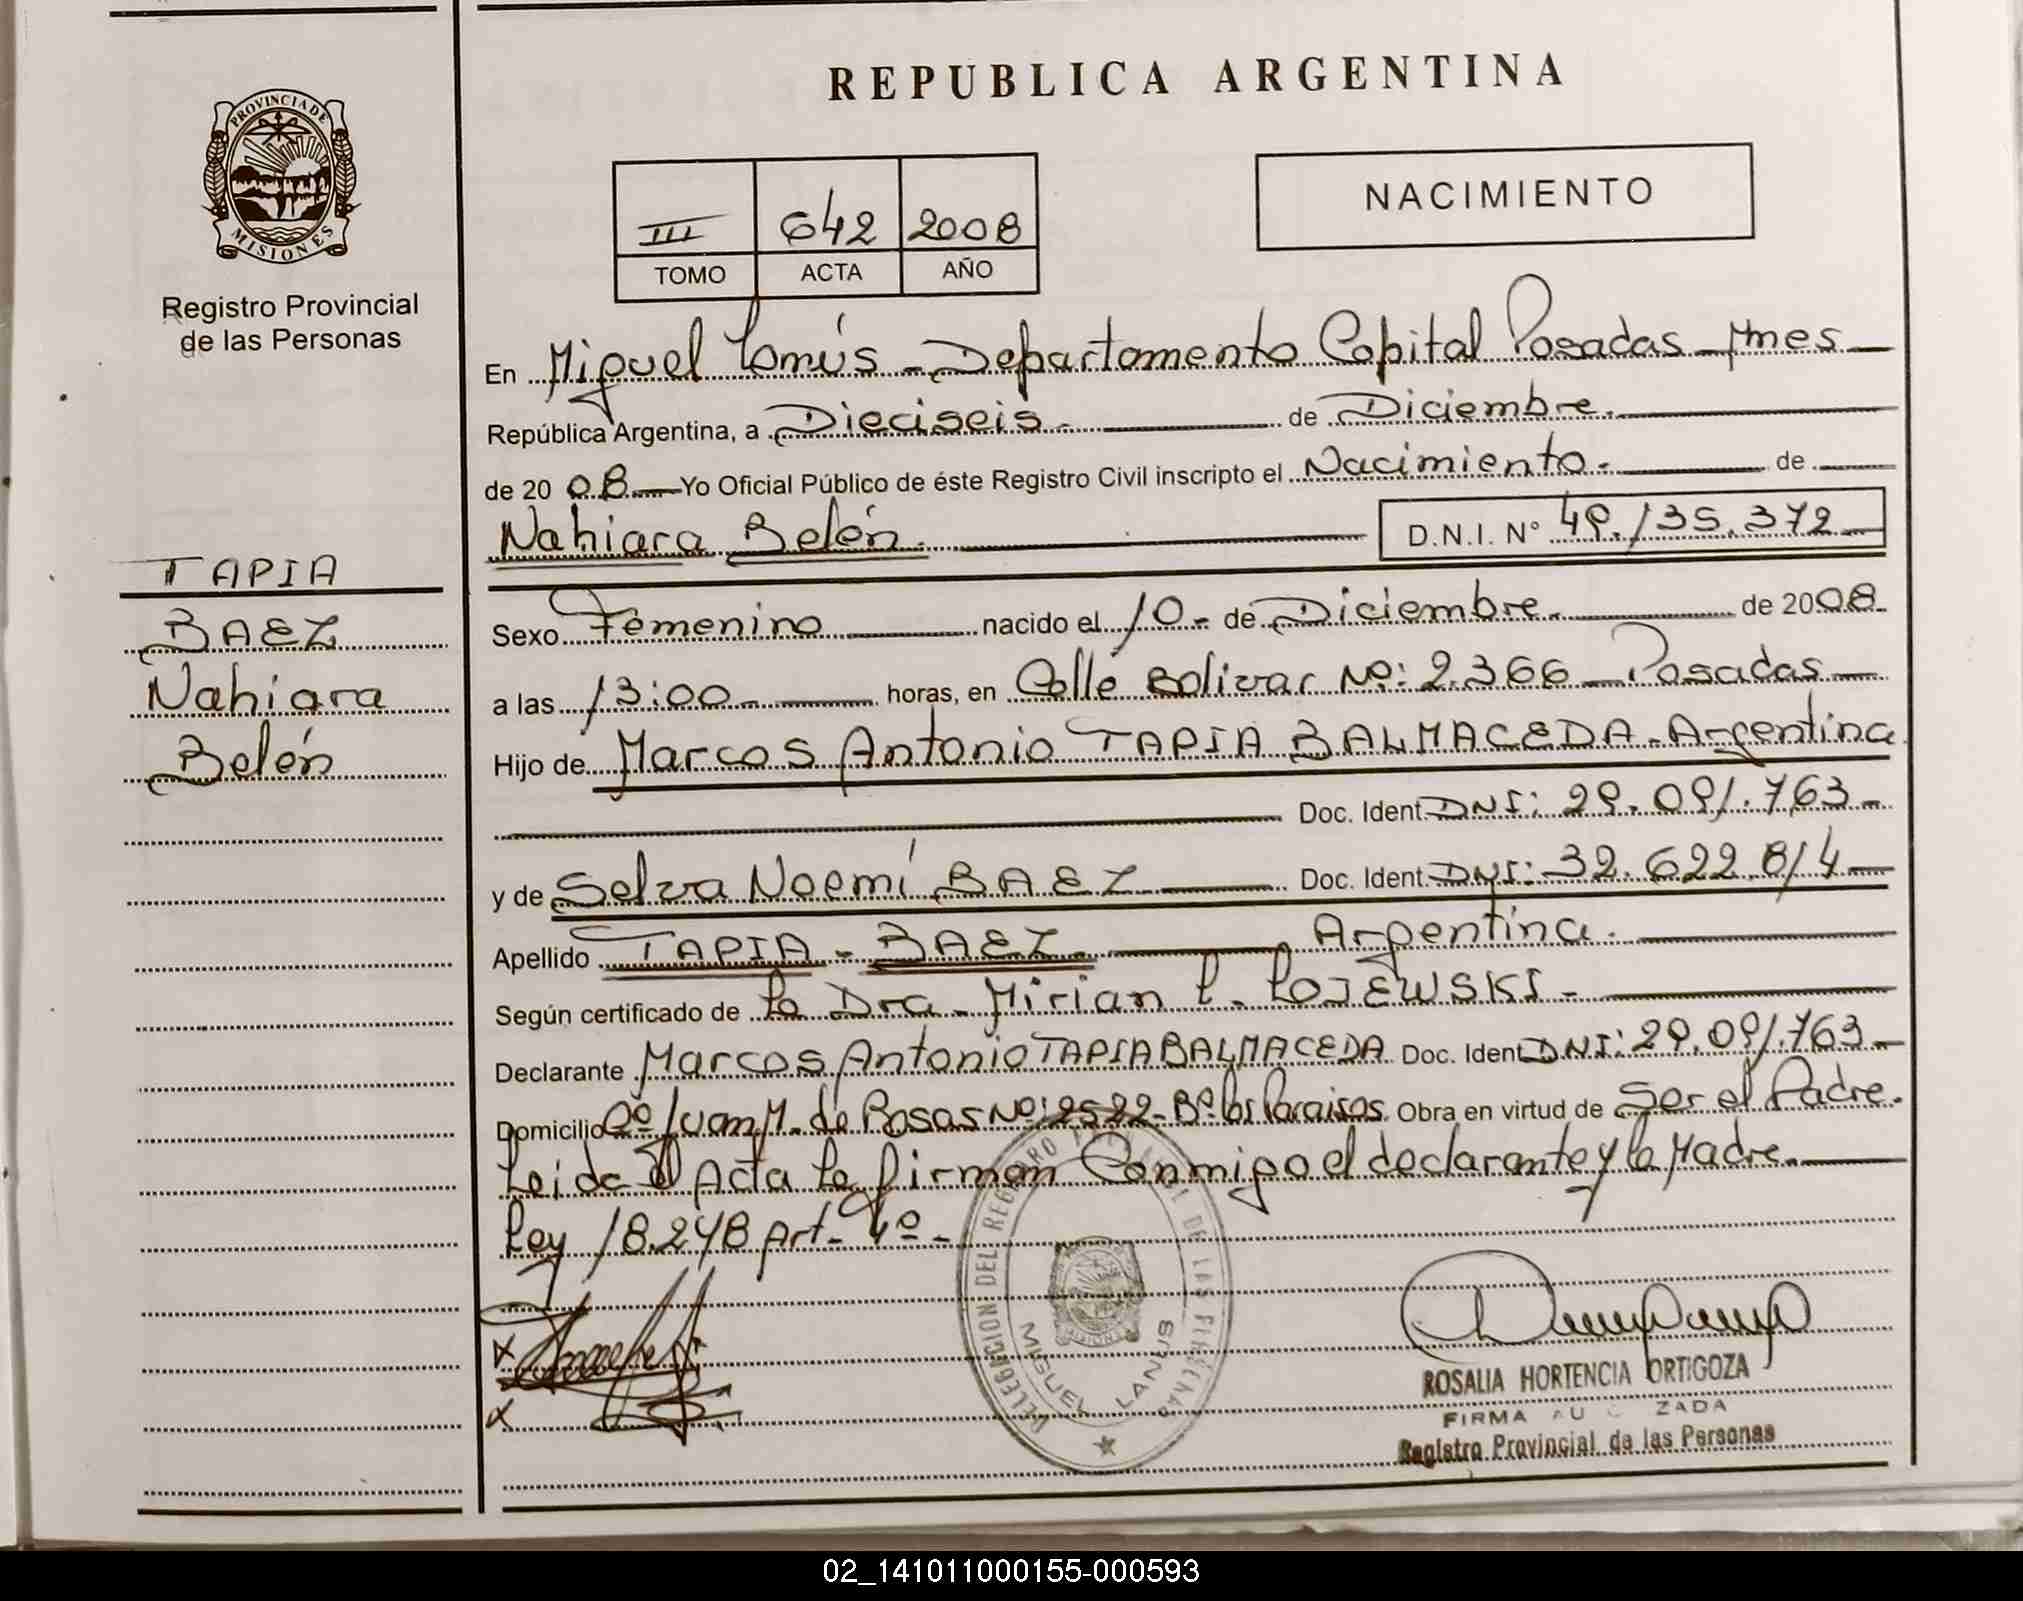 REPUBLICA ARGENTINA
PROVINCIA DE
MISIONES
Registro Provincial
de las Personas
III 642 2008
TOMO ACTA AÑO
NACIMIENTO
En Miguel Lanús - Departamento Capital Posadas - Mnes
República Argentina, a Dieciseis - de Diciembre.
de 20 08 Yo Oficial Público de éste Registro Civil inscripto el Nacimiento - de
Nahiara Belén. D.N.I. N° 49.135.372
TAPIA
BAEZ
Nahiara
Belén
Sexo Femenino nacido el 10 - de Diciembre - de 2008.
a las 13:00 horas, en Calle Bolivar Nº: 2.366 - Posadas
Hijo de Marcos Antonio TAPIA BALMACEDA - Argentina
Doc. Ident. DNI: 29.091.763
y de Selva Noemí BAEZ Doc. Ident. DNI: 32.622.814
Apellido TAPIA - BAEZ Argentina.
Según certificado de la Dra. Mirian L. LOJEWSKI -
Declarante Marcos Antonio TAPIA BALMACEDA Doc. Ident DNI: 29.091.763
Domicilio Juan M. de Rosas Nº: 2522 - Bº los Paraisos. Obra en virtud de Ser el Padre.
Leida el Acta la firman Conmigo el declarante y la Madre.
Ley 18.248 Art. 4º -
DELEGACION DEL REGISTRO PROVINCIAL DE LAS PERSONAS
MIGUEL LANUS
ROSALIA HORTENCIA ORTIGOZA
FIRMA AU ZADA
Registro Provincial de las Personas
02_141011000155-000593